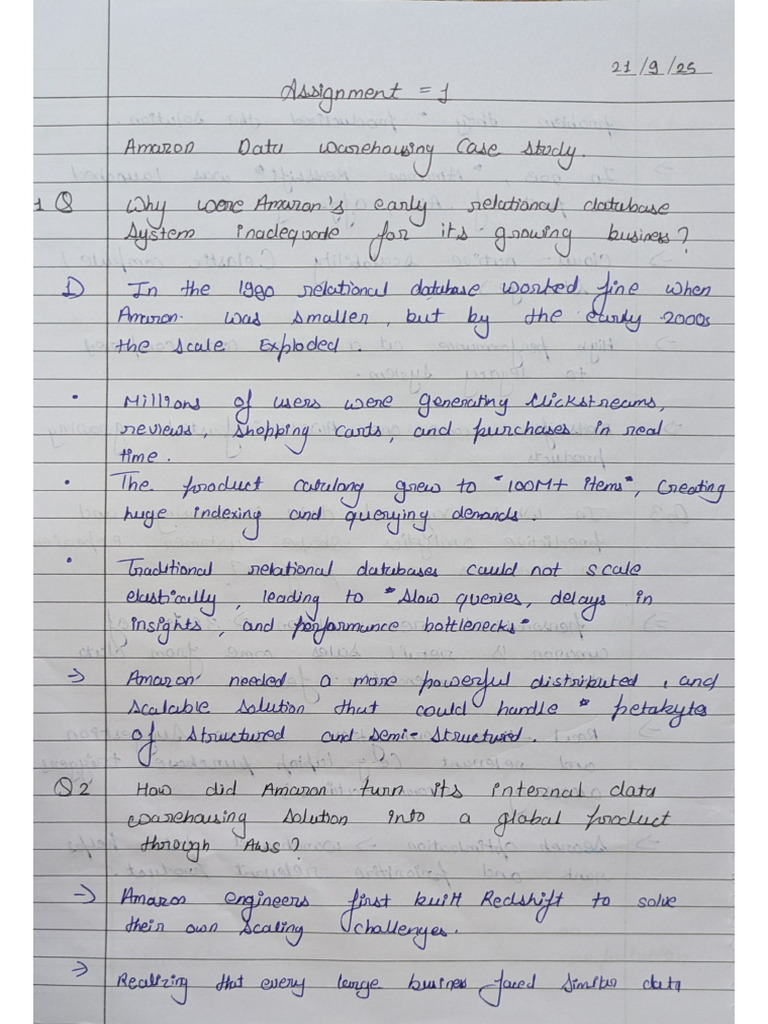 21/9/25
Assignment = 1
Amazon Data warehousing Case Study.
1 Q Why were Amazon's early relational database
System inadequate for its growing business?
1) In the 1990 relational database worked fine when
Amazon was smaller, but by the early 2000s
the scale Exploded.
• Millions of users were generating Clickstreams,
reviews, shopping carts, and purchases in real
time.
• The product catalong grew to "100M+ items", Creating
huge indexing and querying demands.
• Traditional relational databases could not scale
elastically, leading to "Slow queries, delays in
insights, and performance bottlenecks"
⇒ Amazon needed a more powerful distributed, and
Scalable Solution that could handle " petabytes
of Structured and Semi-Structured.
Q 2 How did Amazon turn its internal data
warehousing Solution into a global product
through AWS?
⇒ Amazon engineers first built Redshift to solve
their own Scaling challenges.
⇒ Realizing that every large business faced similar data